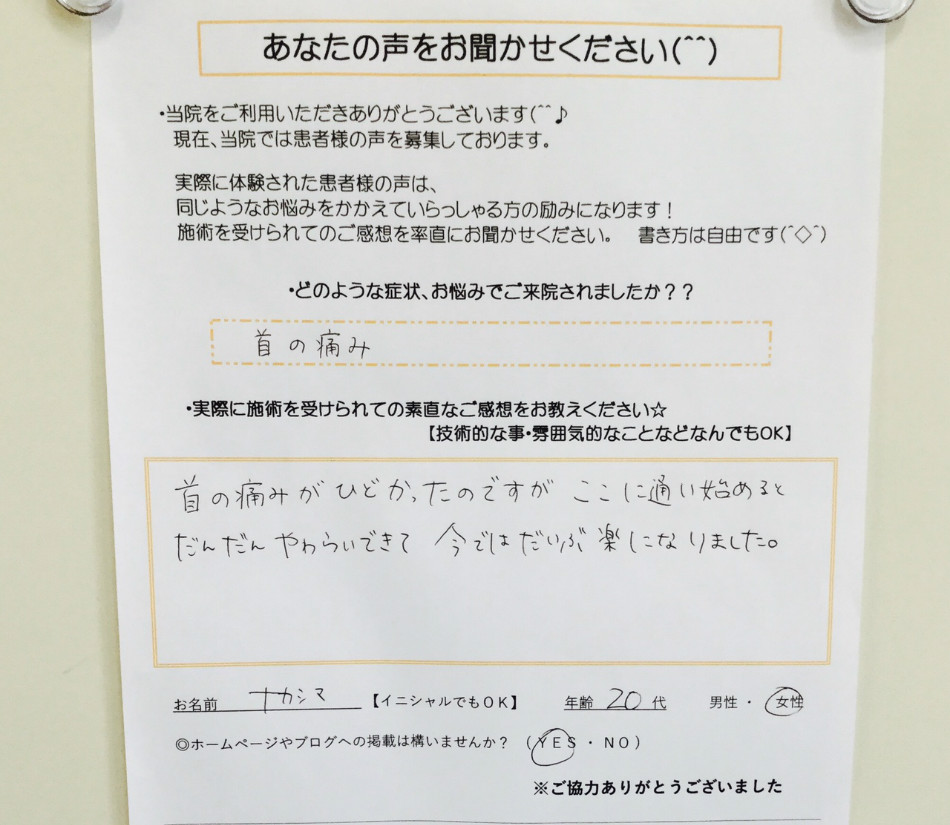 あなたの声をお聞かせください(^^)
・当院をご利用いただきありがとうございます(^^♪
現在、当院では患者様の声を募集しております。
実際に体験された患者様の声は、
同じようなお悩みをかかえていらっしゃる方の励みになります！
施術を受けられてのご感想を率直にお聞かせください。　書き方は自由です(^◇^)
・どのような症状、お悩みでご来院されましたか？？
首の痛み
・実際に施術を受けられての素直なご感想をお教えください☆
【技術的な事・雰囲気的なことなどなんでもOK】
首の痛みがひどかったのですがここに通い始めると
だんだんやわらいできて今ではだいぶ楽になりました。
お名前 ナカシマ 【イニシャルでもＯＫ】 年齢 20 代 男性 ・ 女性
◎ホームページやブログへの掲載は構いませんか？ （ＹＥＳ ・ ＮＯ）
※ご協力ありがとうございました